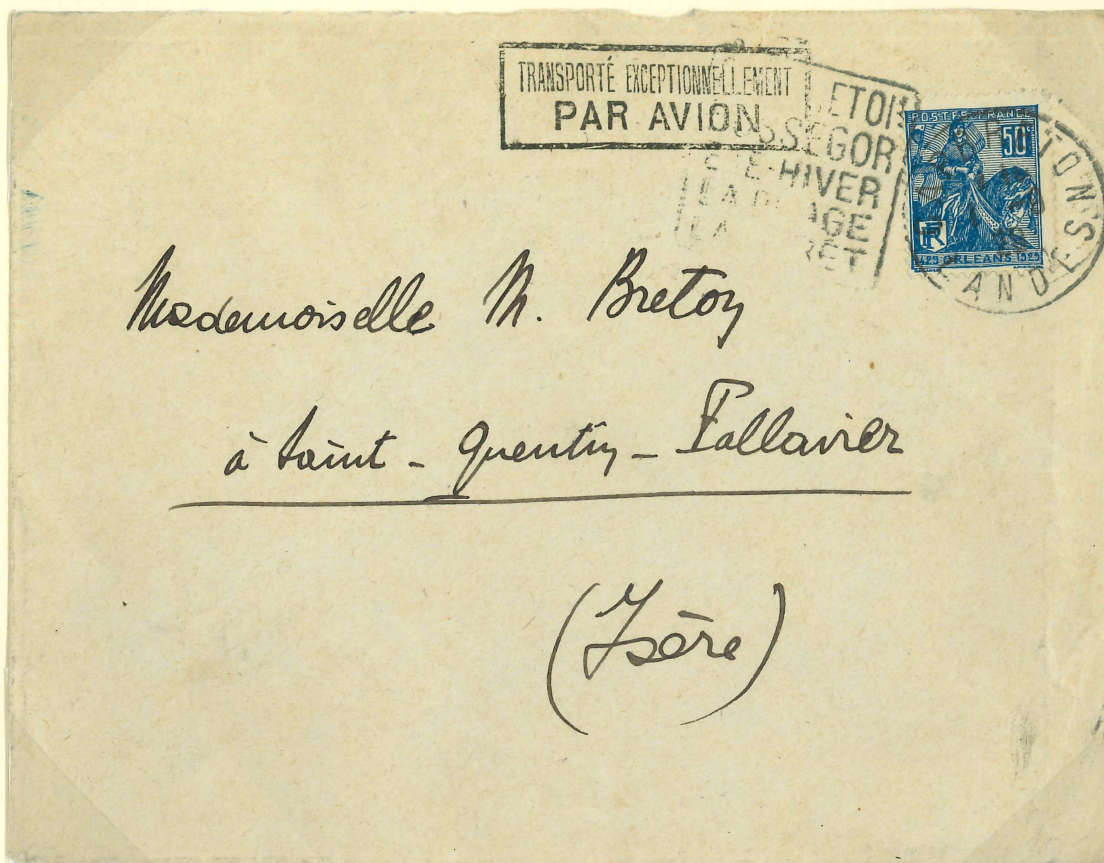 TRANSPORTÉ EXCEPTIONNELLEMENT
PAR AVION
HIVER
POSTES FRANCE
50c
RF
ORLEANS 1929
LANDES
Mademoiselle M. Breton
à Saint-Quentin-Fallavier
(Isère)